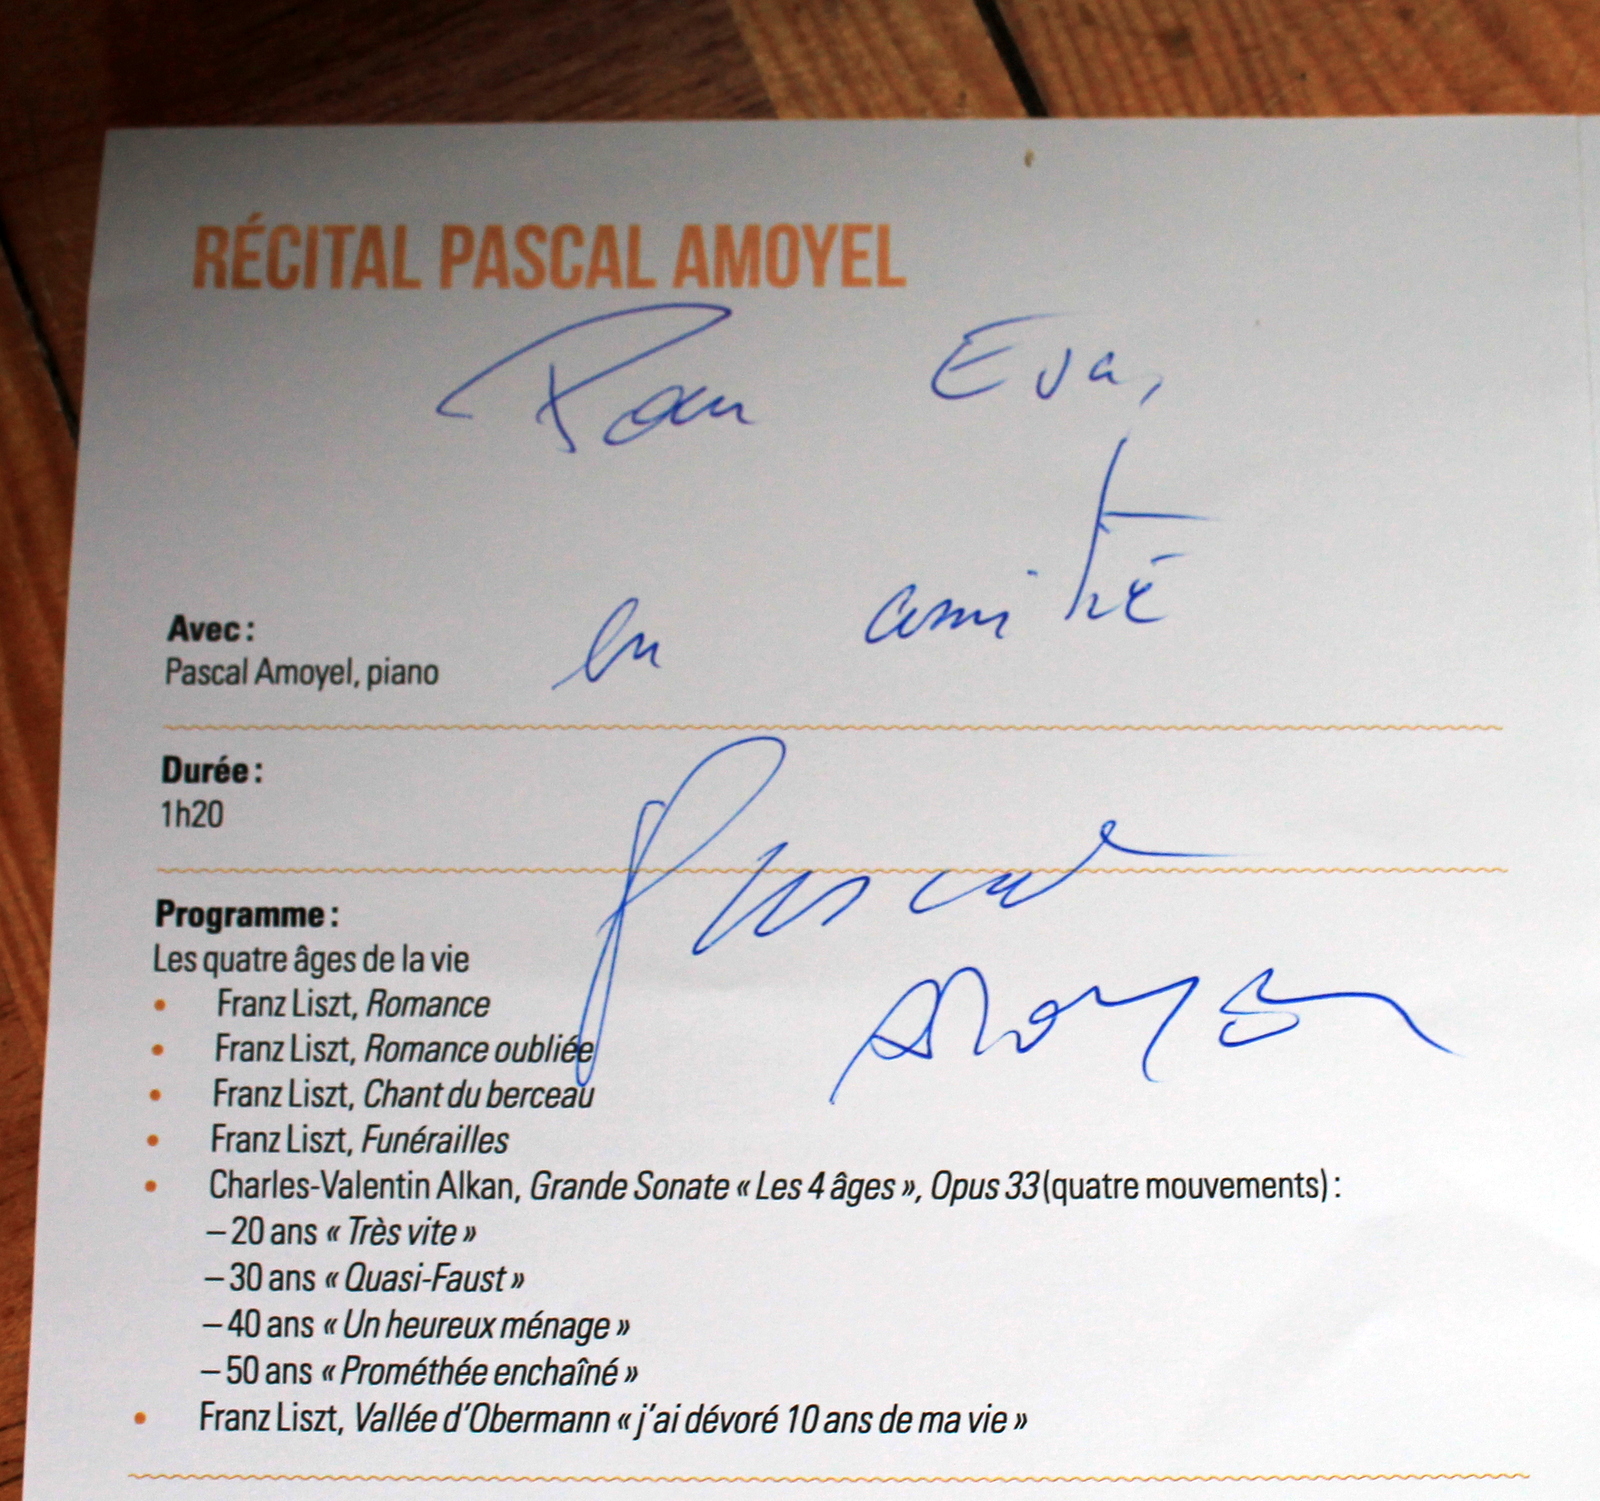 RÉCITAL PASCAL AMOYEL
Pour Eva,
en amitié
Avec :
Pascal Amoyel, piano
Durée :
1h20
Pascal
Amoyel
Programme :
Les quatre âges de la vie
• Franz Liszt, Romance
• Franz Liszt, Romance oubliée
• Franz Liszt, Chant du berceau
• Franz Liszt, Funérailles
• Charles-Valentin Alkan, Grande Sonate « Les 4 âges », Opus 33 (quatre mouvements) :
– 20 ans « Très vite »
– 30 ans « Quasi-Faust »
– 40 ans « Un heureux ménage »
– 50 ans « Prométhée enchaîné »
• Franz Liszt, Vallée d’Obermann « j’ai dévoré 10 ans de ma vie »